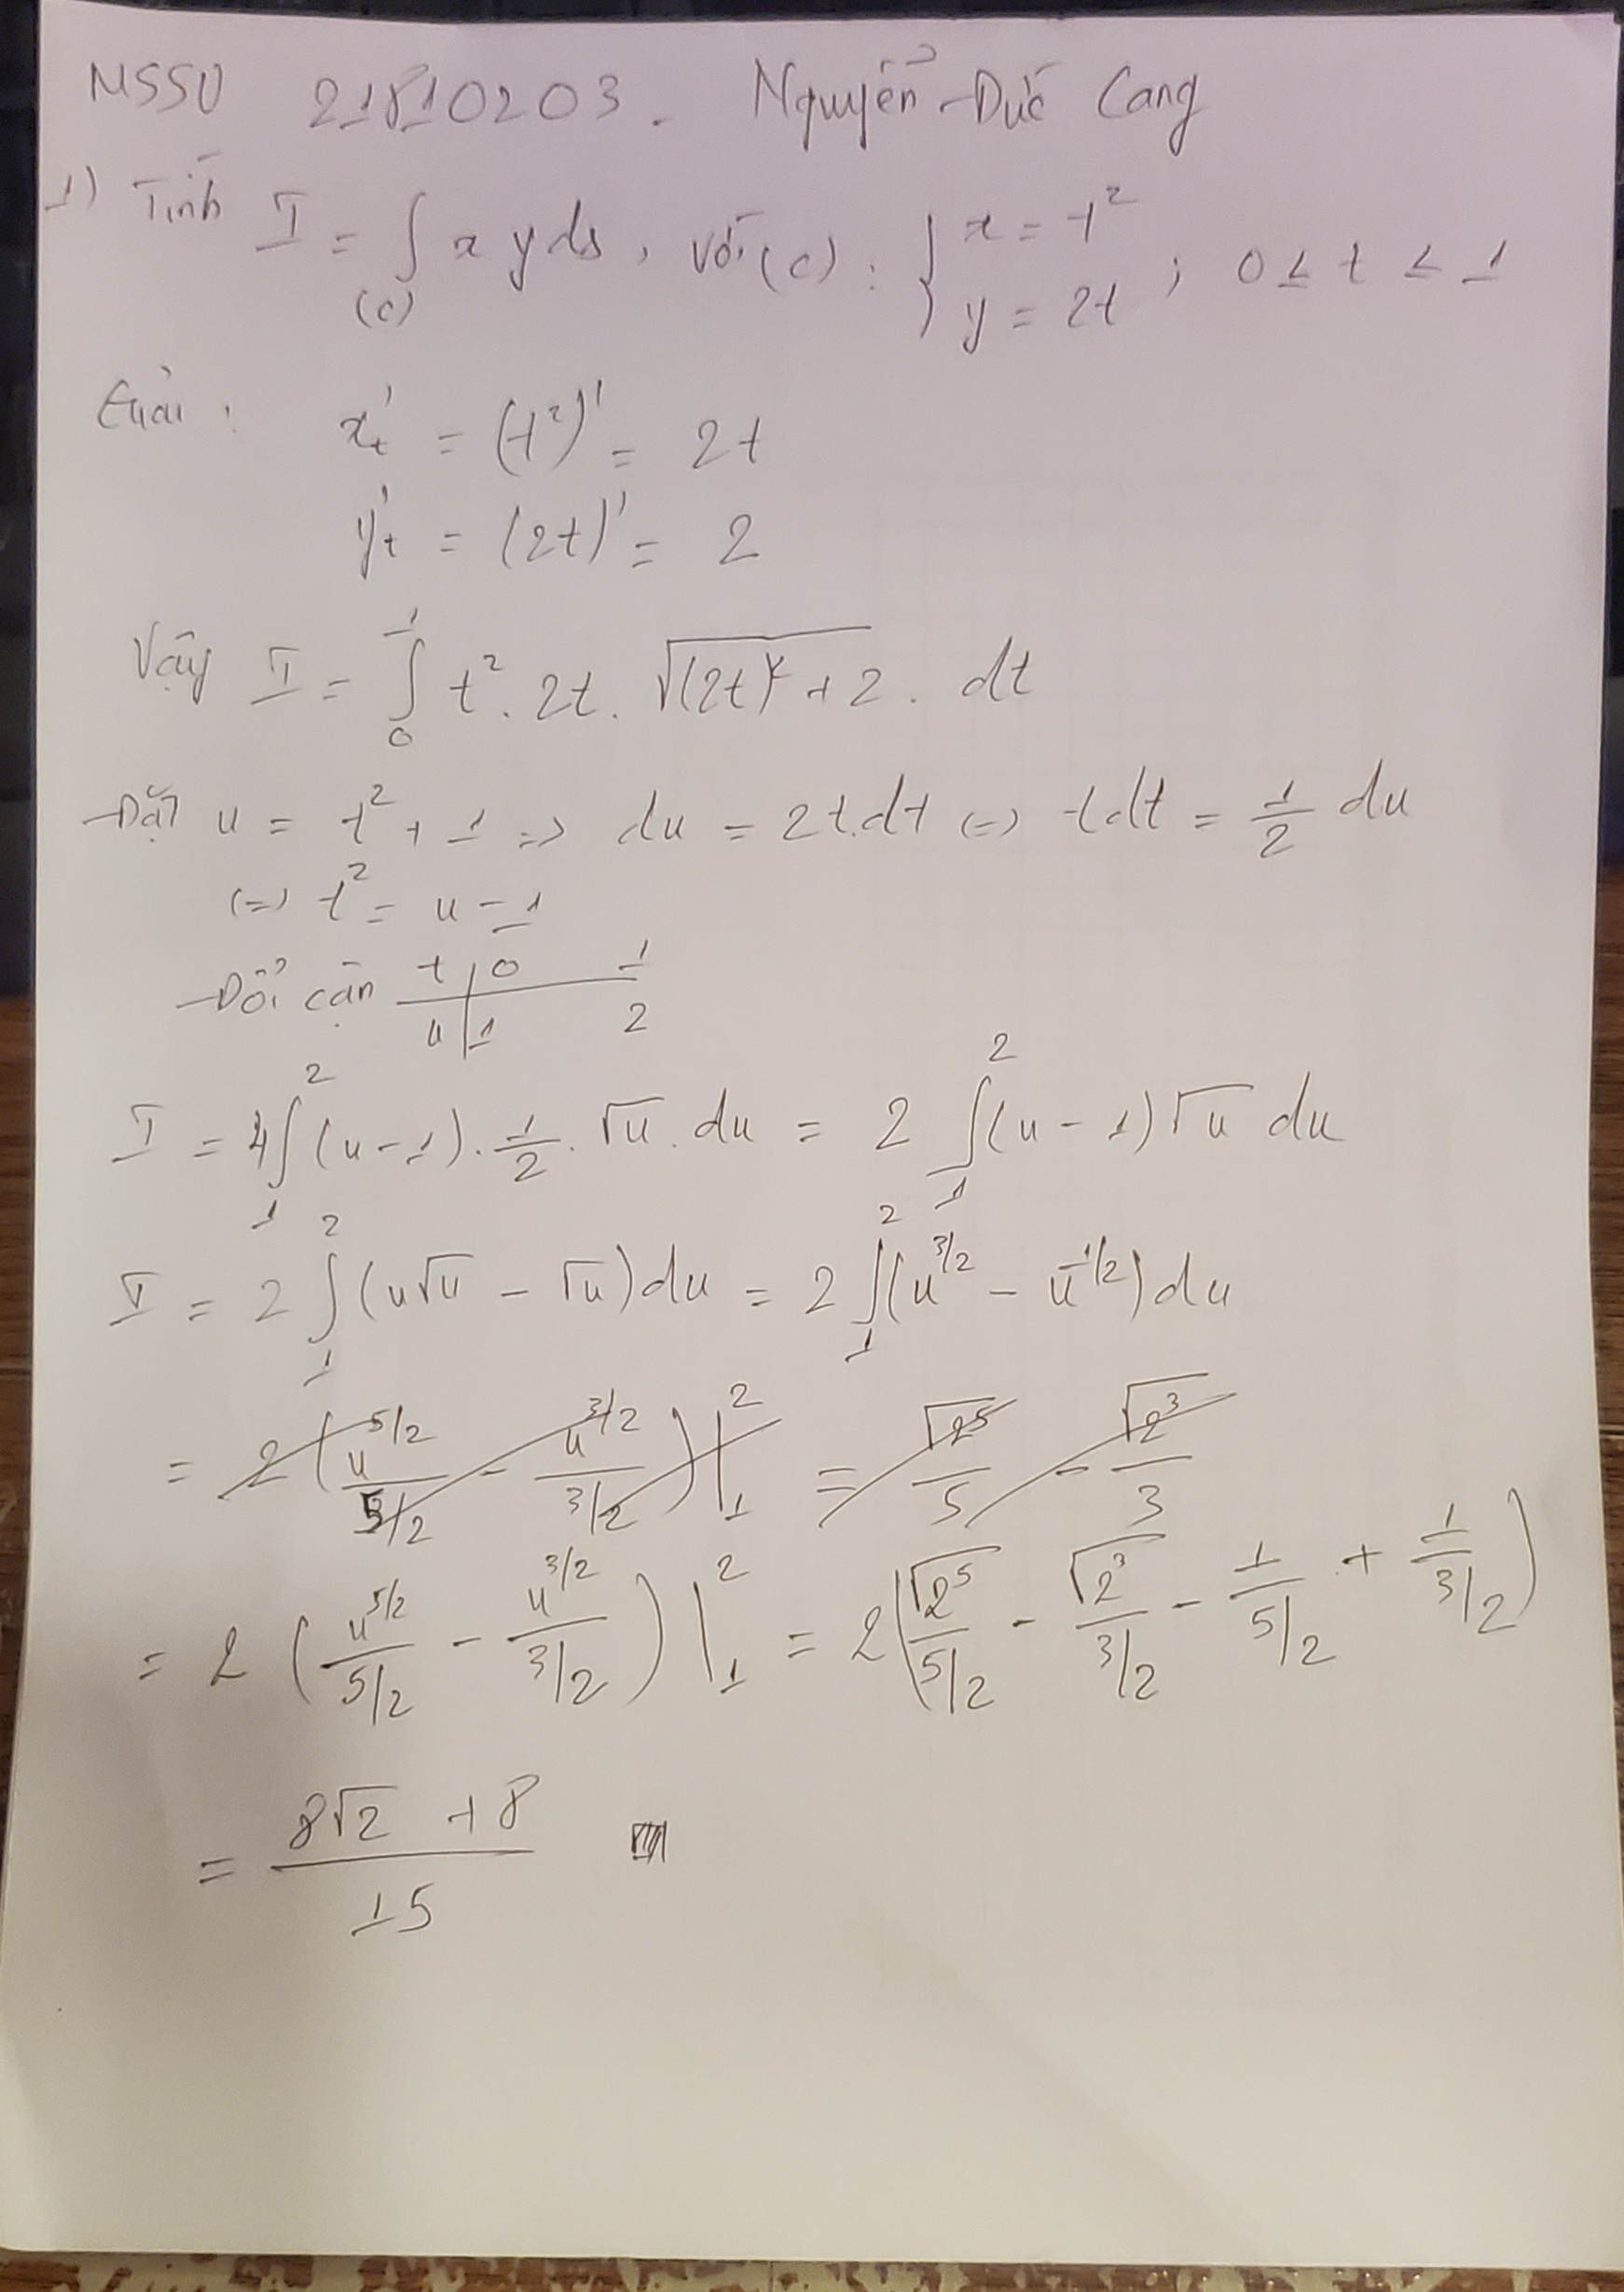 MSSV 21810203. Nguyễn Đức Cang
1) Tính I = ∫(c) x y ds, với (c) : { x = t² y = 2t ; 0 ≤ t ≤ 1
Giải : x't = (t²)' = 2t
y't = (2t)' = 2
Vậy I = ∫₀¹ t² . 2t . √((2t)² + 2) . dt
Đặt u = t² + 1 => du = 2t.dt (=) tdt = 1/2 du
(=) t² = u - 1
Đổi cận t | 0 1
u | 1 2
I = 4∫₁² (u - 1) . 1/2 . √u . du = 2 ∫₁² (u - 1) √u du
I = 2 ∫₁² (u√u - √u) du = 2 ∫₁² (u^3/2 - u^1/2) du
= 2 (u^5/2 / 5/2 - u^3/2 / 3/2) |₁² = √2⁵ / 5 - √2³ / 3
= 2 (u^5/2 / 5/2 - u^3/2 / 3/2) |₁² = 2 (√2⁵ / 5/2 - √2³ / 3/2 - 1 / 5/2 + 1 / 3/2)
= 8√2 + 8 / 15